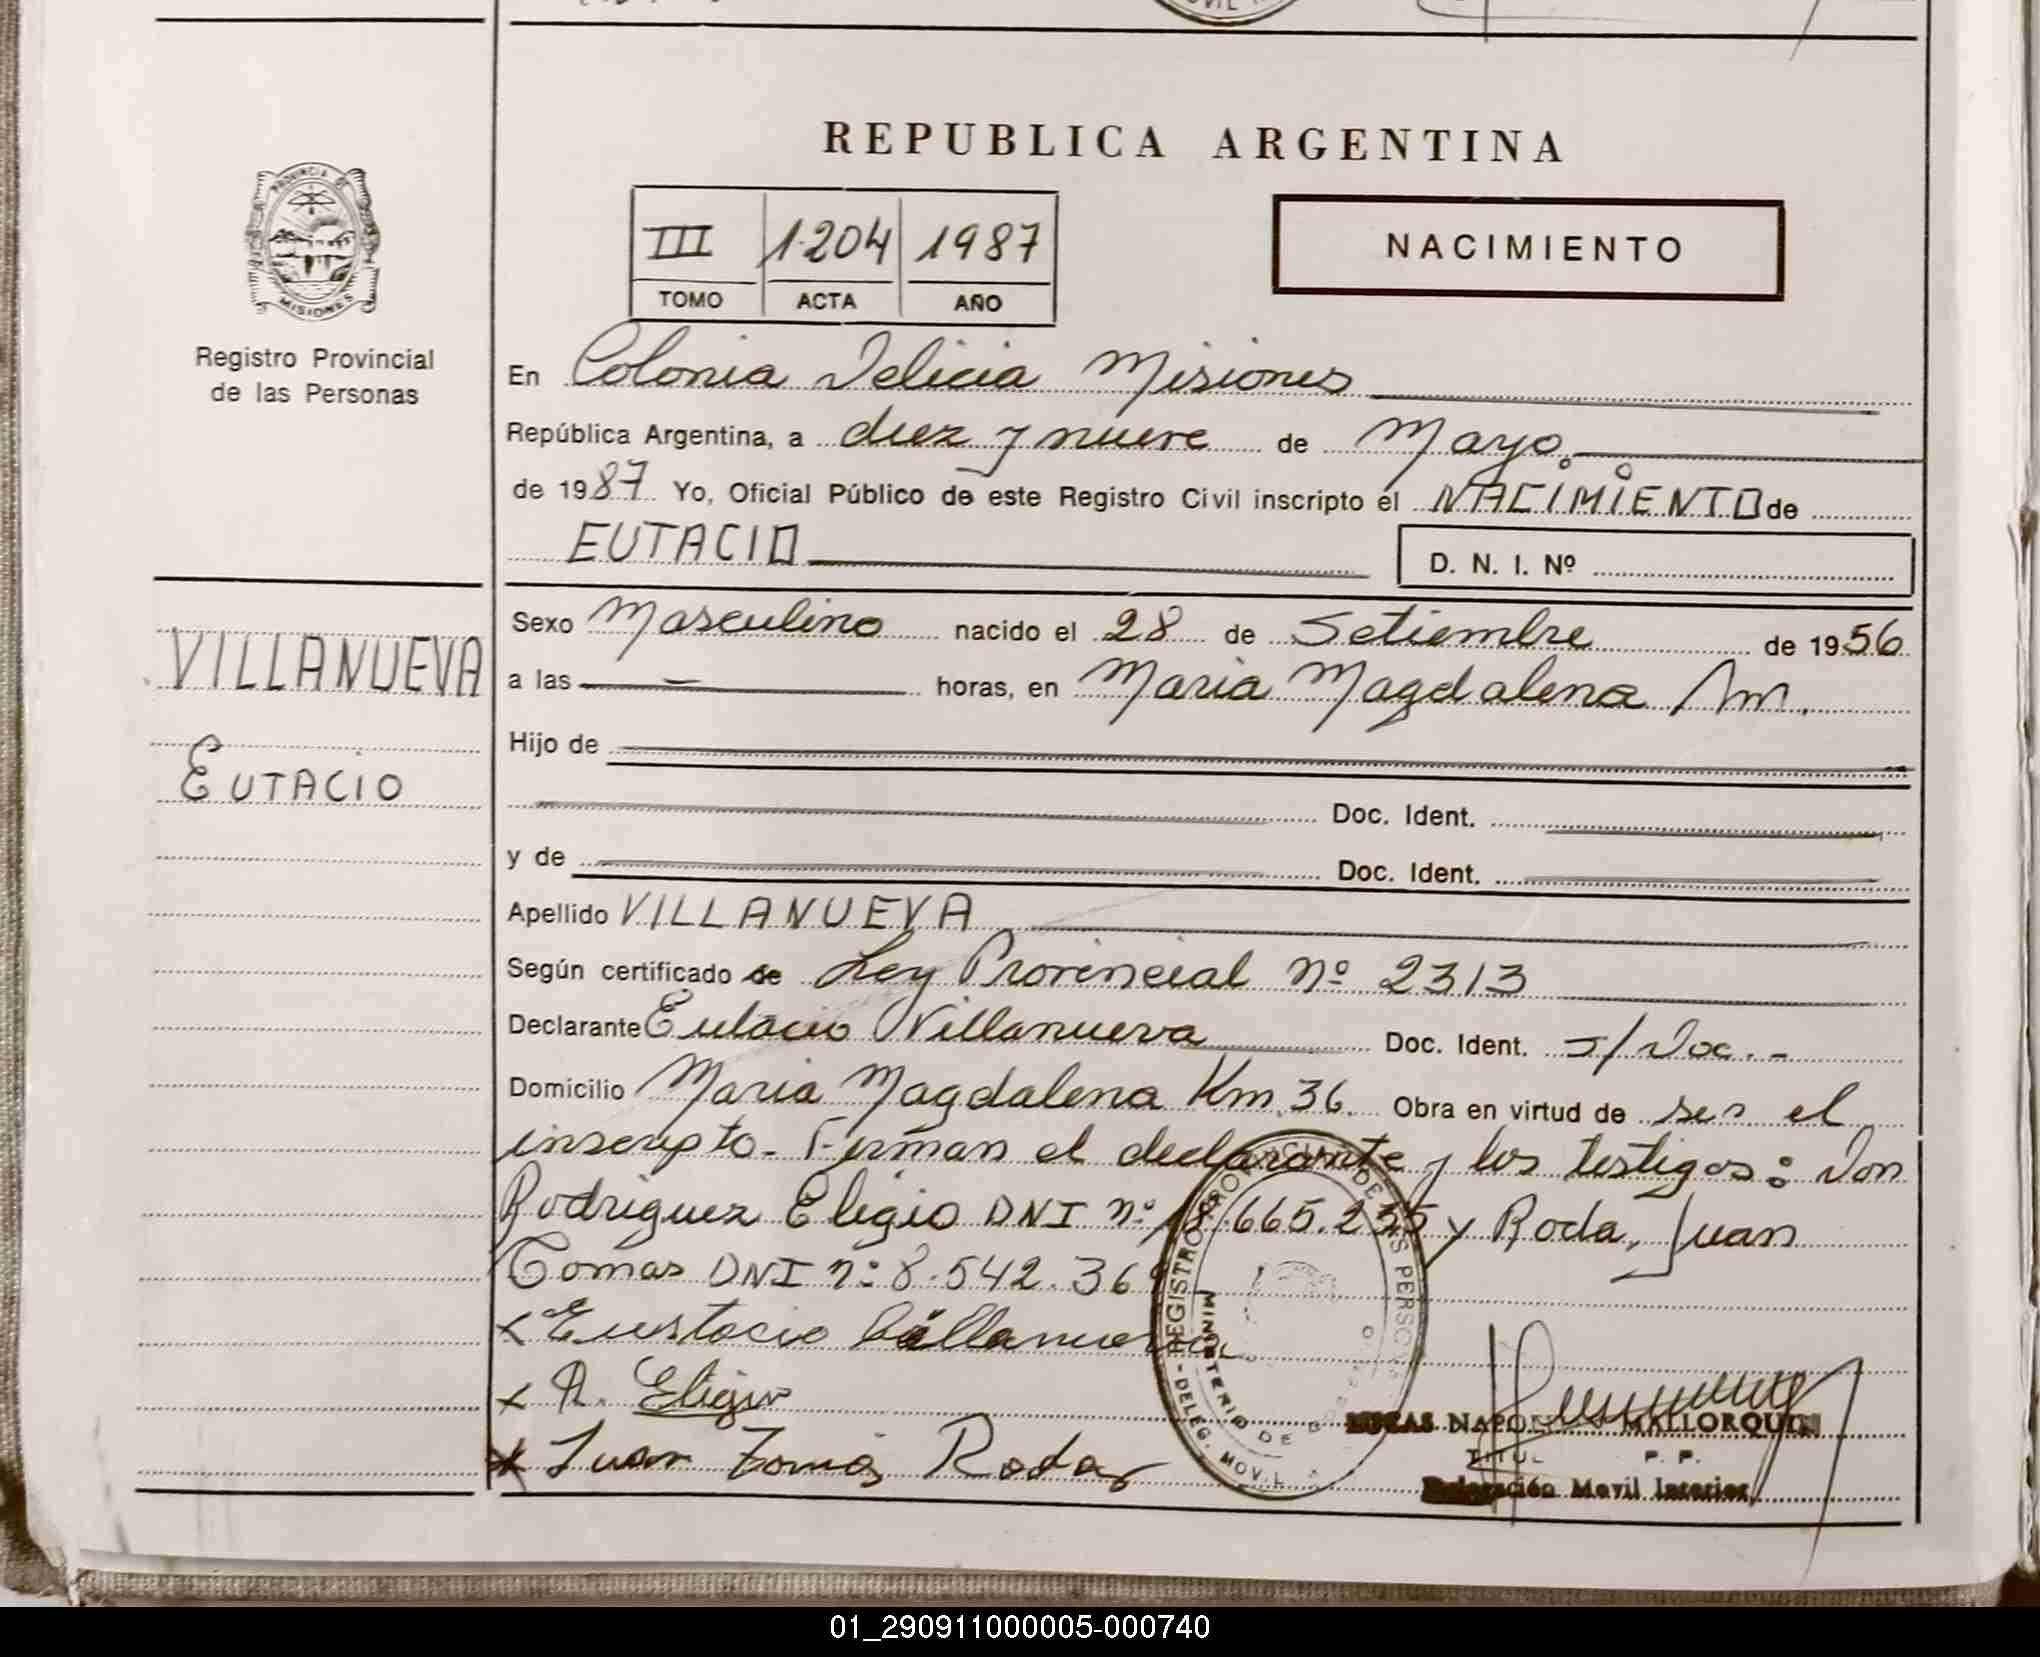 REPUBLICA ARGENTINA
PROVINCIA DE
MISIONES
Registro Provincial
de las Personas
III 1.204 1987
TOMO ACTA AÑO
NACIMIENTO
En Colonia Delicia Misiones
República Argentina, a diez y nueve de Mayo.
de 1987 Yo, Oficial Público de este Registro Civil inscripto el NACIMIENTO de
EUTACIO
D. N. I. Nº
VILLANUEVA
EUTACIO
Sexo Masculino nacido el 28 de Setiembre de 1956
a las — horas, en Maria Magdalena Mn.
Hijo de
Doc. Ident.
y de Doc. Ident.
Apellido VILLANUEVA
Según certificado de Ley Provincial nº 2313
Declarante Eutacio Villanueva Doc. Ident. S/Doc.-
Domicilio Maria Magdalena Km 36. Obra en virtud de ser el
inscripto. Firman el declarante y los testigos: Don
Rodriguez Eligio DNI nº 18.665.235 y Roda, Juan
Tomas DNI nº 8.542.369
x Eustacio Villanueva
x R. Eligio
x Juan Tomás Roda
REGISTRO PROVINCIAL DE LAS PERSONAS
MINISTERIO DE
- DELEG. MOVIL
LUCAS NAPOL MALLORQUIN
TITUL P. P.
Delegación Movil Interior
01_290911000005-000740